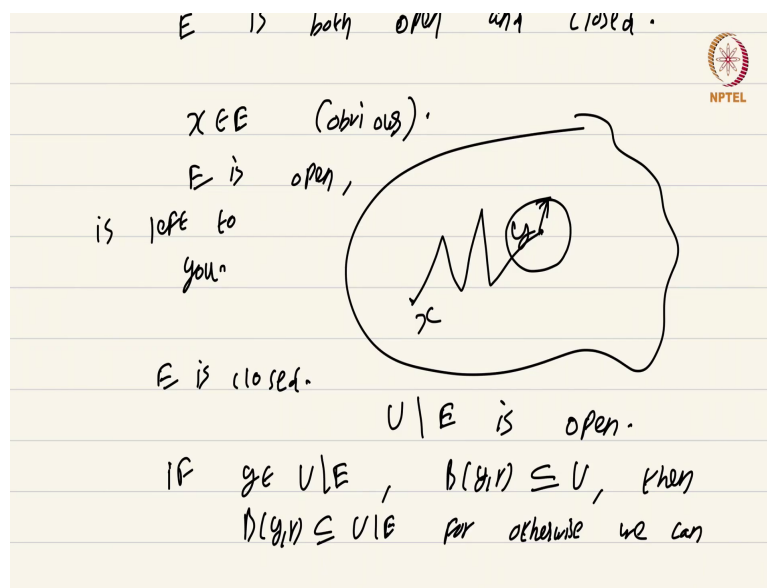 E is both open and closed.
NPTEL
x ∈ E (obvious).
E is open,
is left to
you.
y
x
E is closed.
U \ E is open.
IF y ∈ U \ E, B(y,r) ⊆ U, then
B(y,r) ⊆ U \ E for otherwise we can